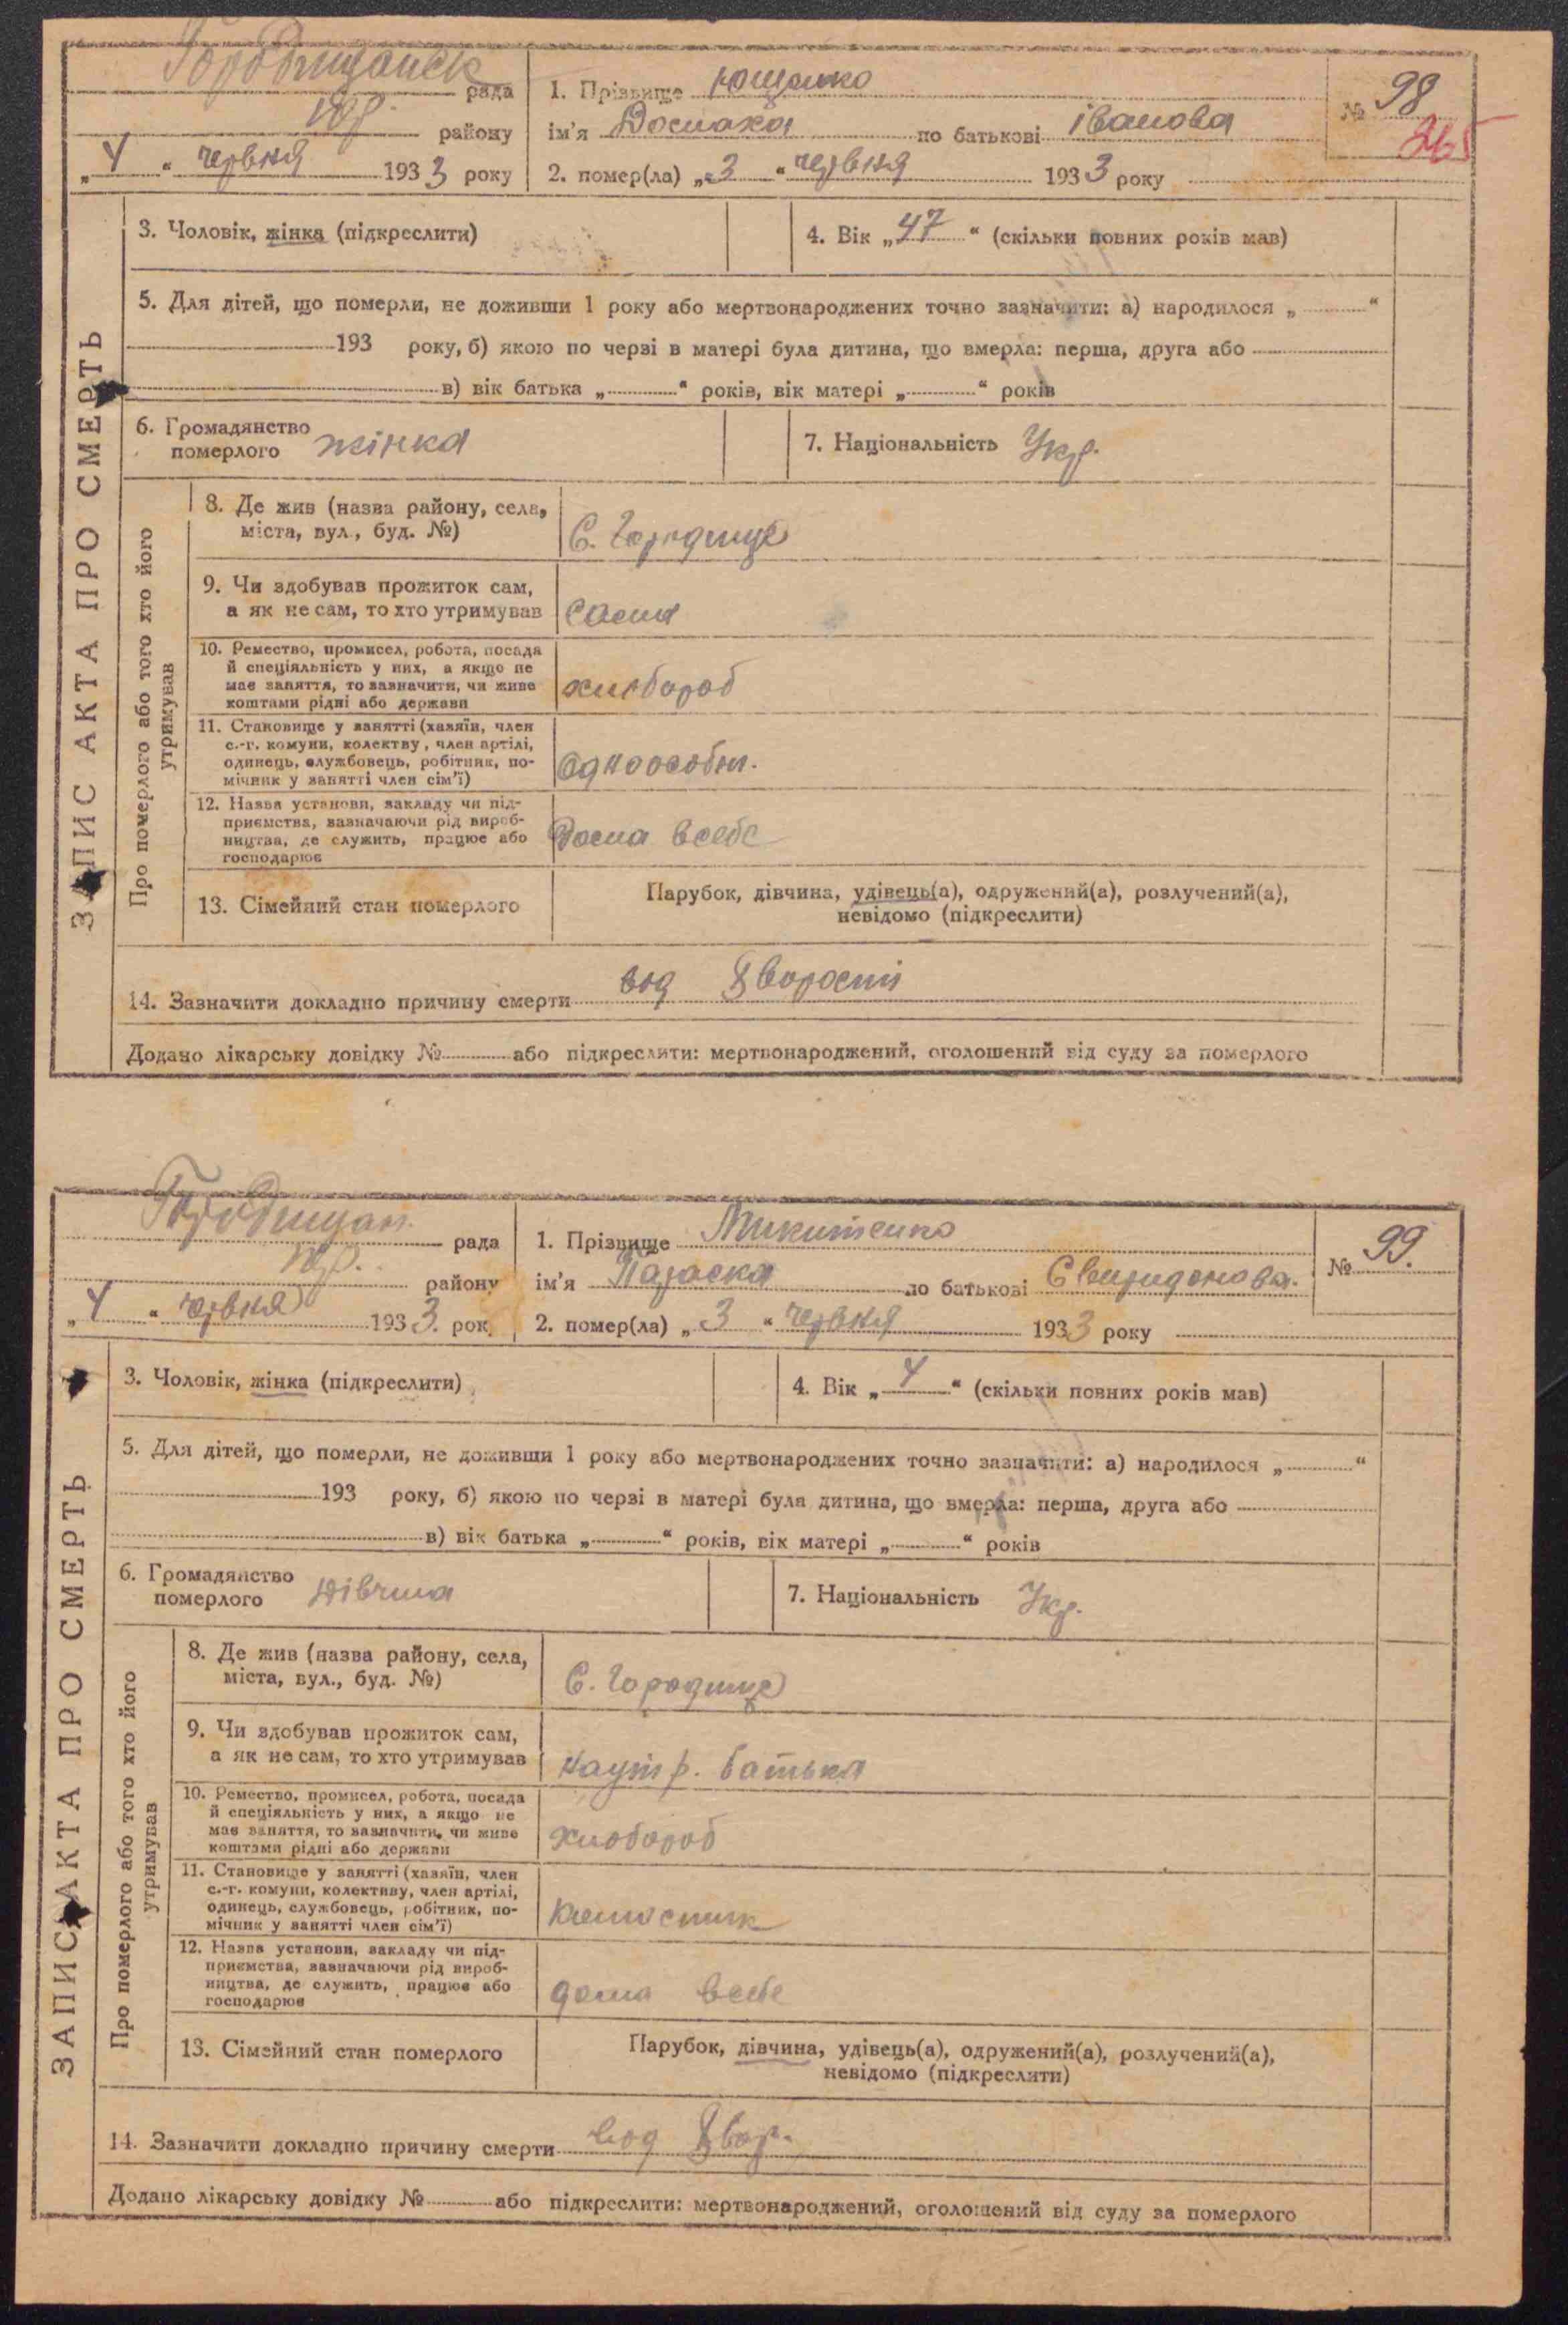 Городищанськ рада
району
„4“ червня 1933 року
1. Прізвище Ющенко
ім'я Домаха по батькові Іванова
2. помер(ла) „3“ червня 1933 року
№ 98
265
ЗАПИС АКТА ПРО СМЕРТЬ
3. Чоловік, жінка (підкреслити)
4. Вік „47“ (скільки повних років мав)
5. Для дітей, що померли, не доживши 1 року або мертвонароджених точно зазначити: а) народилося „ “
193 року, б) якою по черзі в матері була дитина, що вмерла: перша, друга або
в) вік батька „ “ років, вік матері „ “ років
6. Громадянство
померлого жінка
7. Національність Укр.
Про померлого або того хто його
утримував
8. Де жив (назва району, села,
міста, вул., буд. №)
С. Городище
9. Чи здобував прожиток сам,
а як не сам, то хто утримував
сама
10. Ремество, промисел, робота, посада
й спеціяльність у них, а якщо не
має заняття, то зазначити, чи живе
коштами рідні або держави
хлібороб
11. Становище у занятті (хазяїн, член
с.-г. комуни, колективу, член артілі,
одинець, службовець, робітник, по-
мічник у занятті член сім'ї)
одноособн.
12. Назва установи, закладу чи під-
приємства, зазначаючи рід вироб-
ництва, де служить, працює або
господарює
дома всебе
13. Сімейний стан померлого
Парубок, дівчина, удівець(а), одружений(а), розлучений(а),
невідомо (підкреслити)
14. Зазначити докладно причину смерти вод хворости
Додано лікарську довідку № або підкреслити: мертвонароджений, оголошений від суду за померлого
Городищан. рада
району
„4“ червня 1933 рок
1. Прізвище Микитенко
ім'я Параска по батькові Свиридонова.
2. помер(ла) „3“ червня 1933 року
№ 99.
ЗАПИС АКТА ПРО СМЕРТЬ
3. Чоловік, жінка (підкреслити)
4. Вік „4“ (скільки повних років мав)
5. Для дітей, що померли, не доживши 1 року або мертвонароджених точно зазначити: а) народилося „ “
193 року, б) якою по черзі в матері була дитина, що вмерла: перша, друга або
в) вік батька „ “ років, вік матері „ “ років
6. Громадянство
померлого дівчина
7. Національність Укр.
Про померлого або того хто його
утримував
8. Де жив (назва району, села,
міста, вул., буд. №)
С. Городище
9. Чи здобував прожиток сам,
а як не сам, то хто утримував
наутр. батька
10. Ремество, промисел, робота, посада
й спеціяльність у них, а якщо не
має заняття, то зазначити, чи живе
коштами рідні або держави
хлібороб
11. Становище у занятті (хазяїн, член
с.-г. комуни, колективу, член артілі,
одинець, службовець, робітник, по-
мічник у занятті член сім'ї)
12. Назва установи, закладу чи під-
приємства, зазначаючи рід вироб-
ництва, де служить, працює або
господарює
дома всебе
13. Сімейний стан померлого
Парубок, дівчина, удівець(а), одружений(а), розлучений(а),
невідомо (підкреслити)
14. Зазначити докладно причину смерти вод хвор.
Додано лікарську довідку № або підкреслити: мертвонароджений, оголошений від суду за померлого